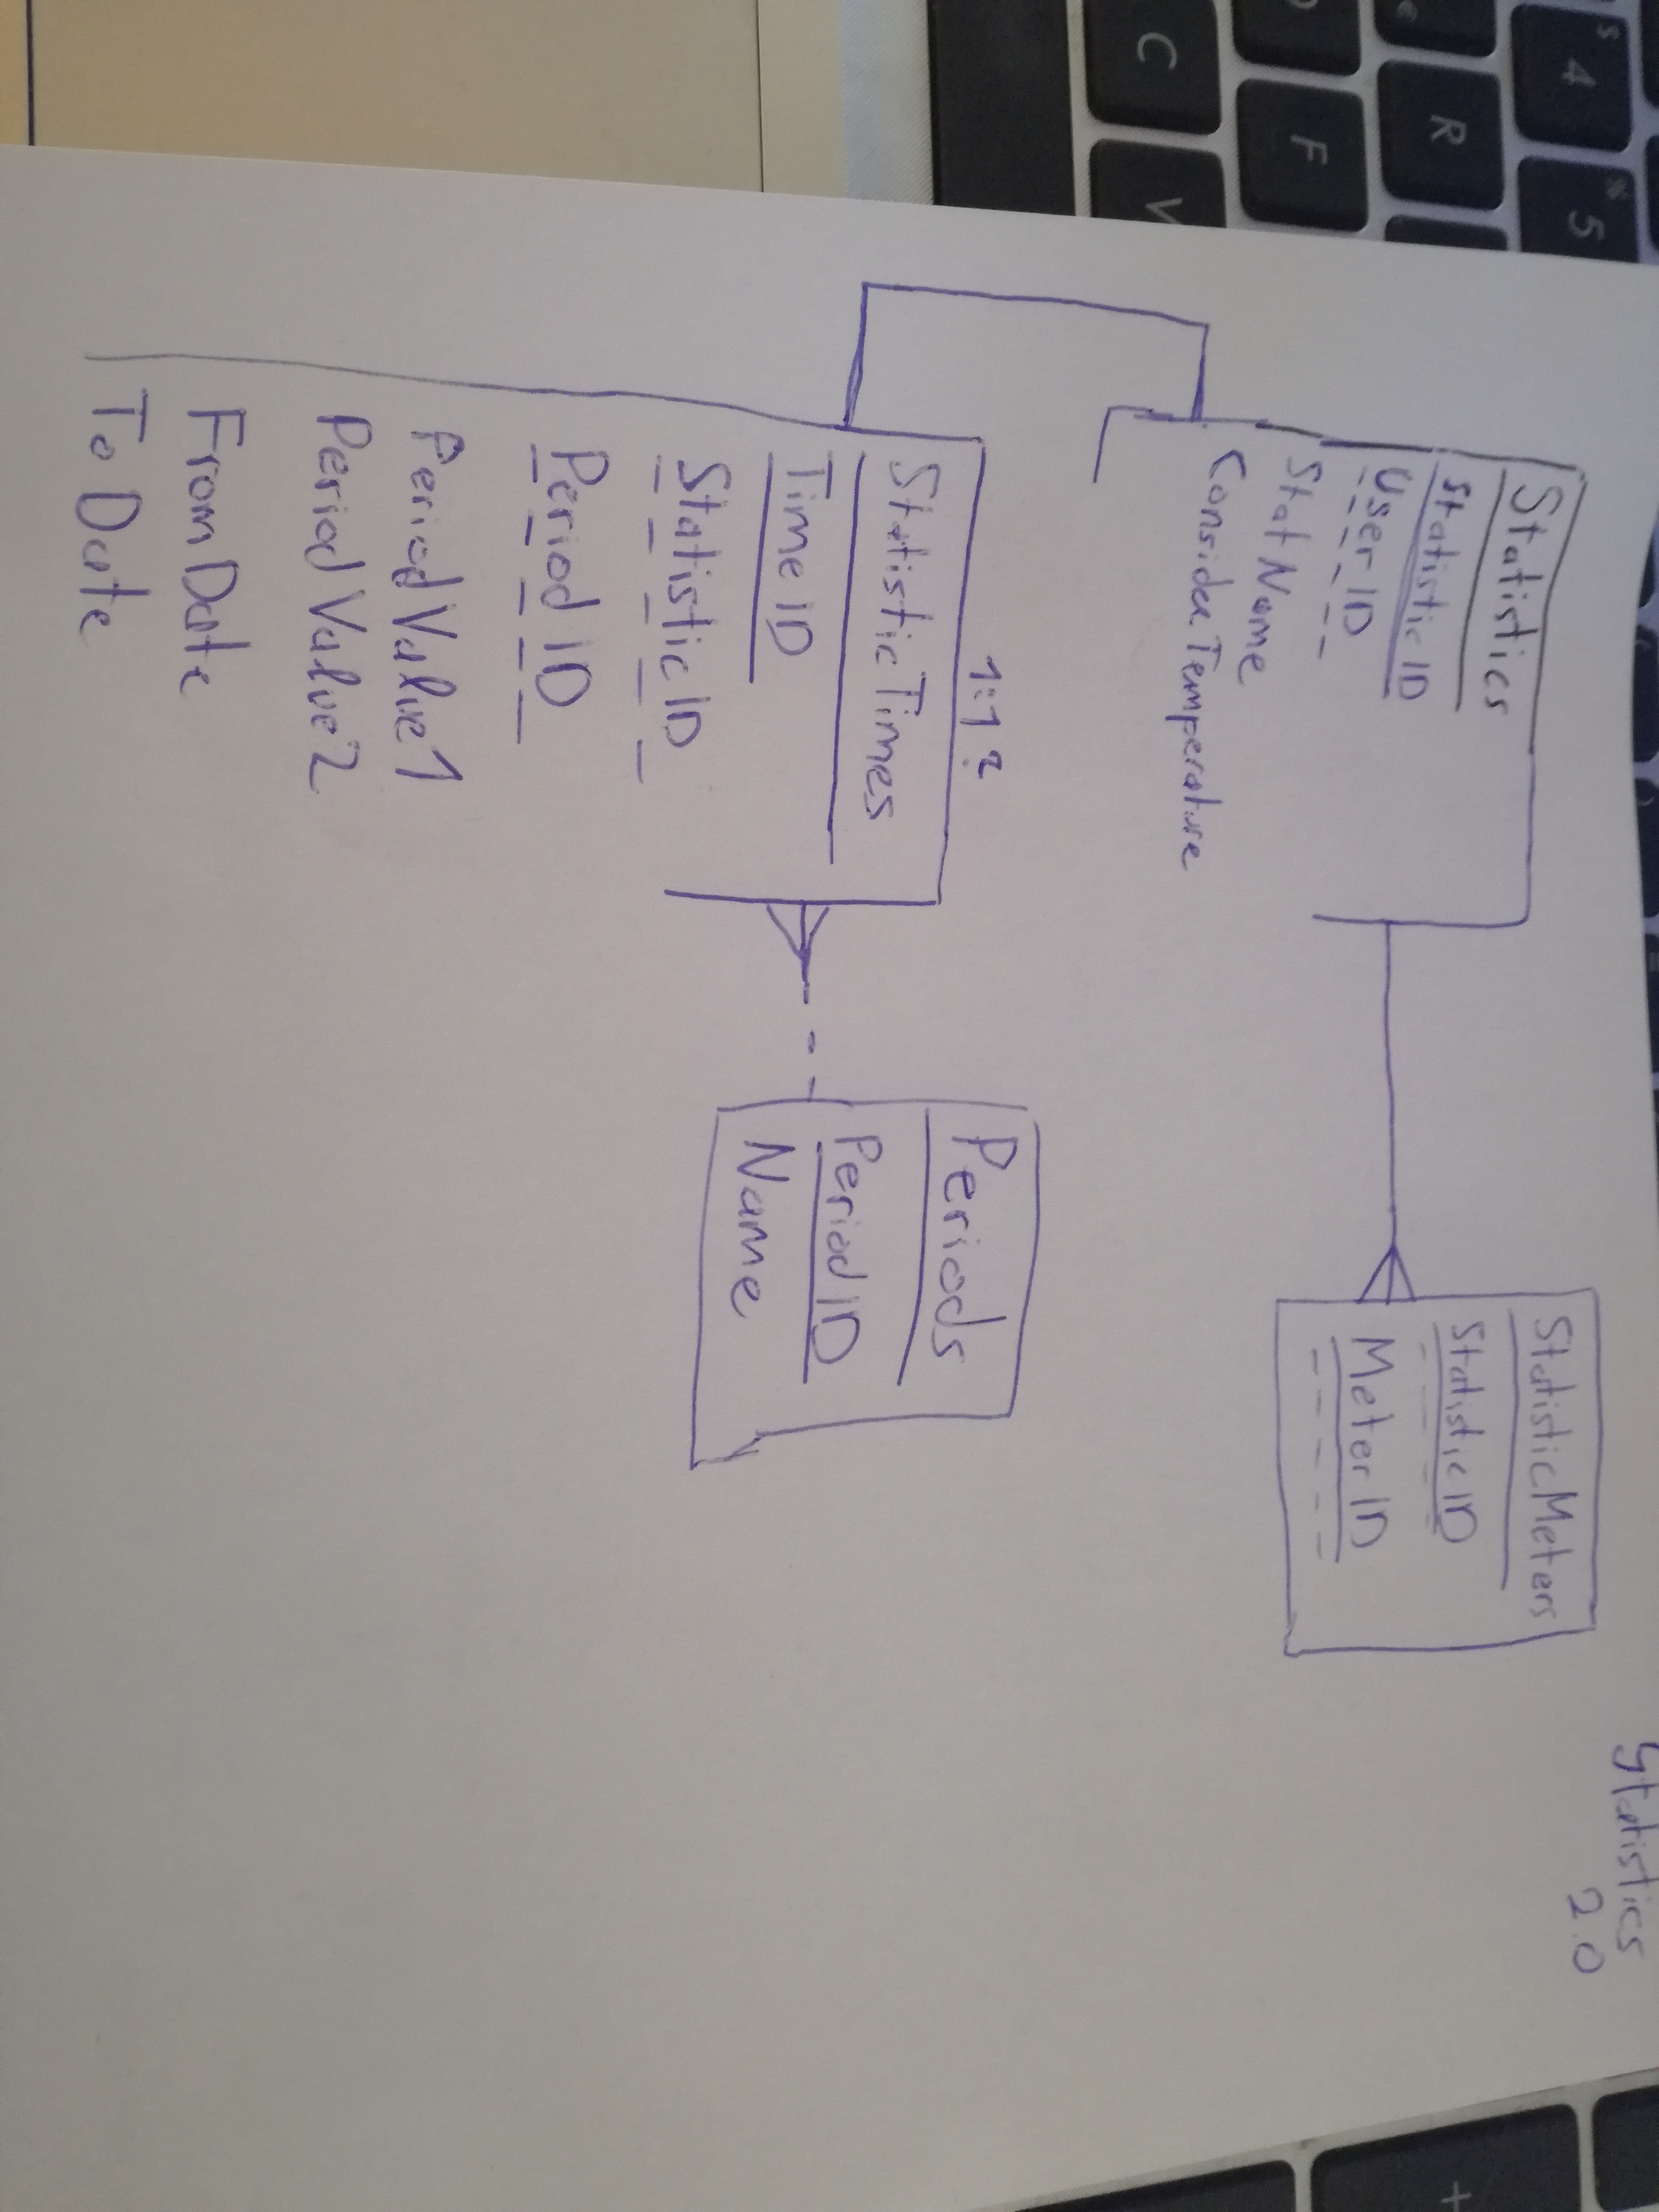 Statistics
2.0
Statistics
Statistic ID
User ID
Stat Name
Consider Temperature
StatisticMeters
Statistic ID
Meter ID
1:1?
Statistic Times
Time ID
Statistic ID
Period ID
Period Value 1
Period Value 2
From Date
To Date
Periods
Period ID
Name
$
4
%
5
R
F
C
V
+